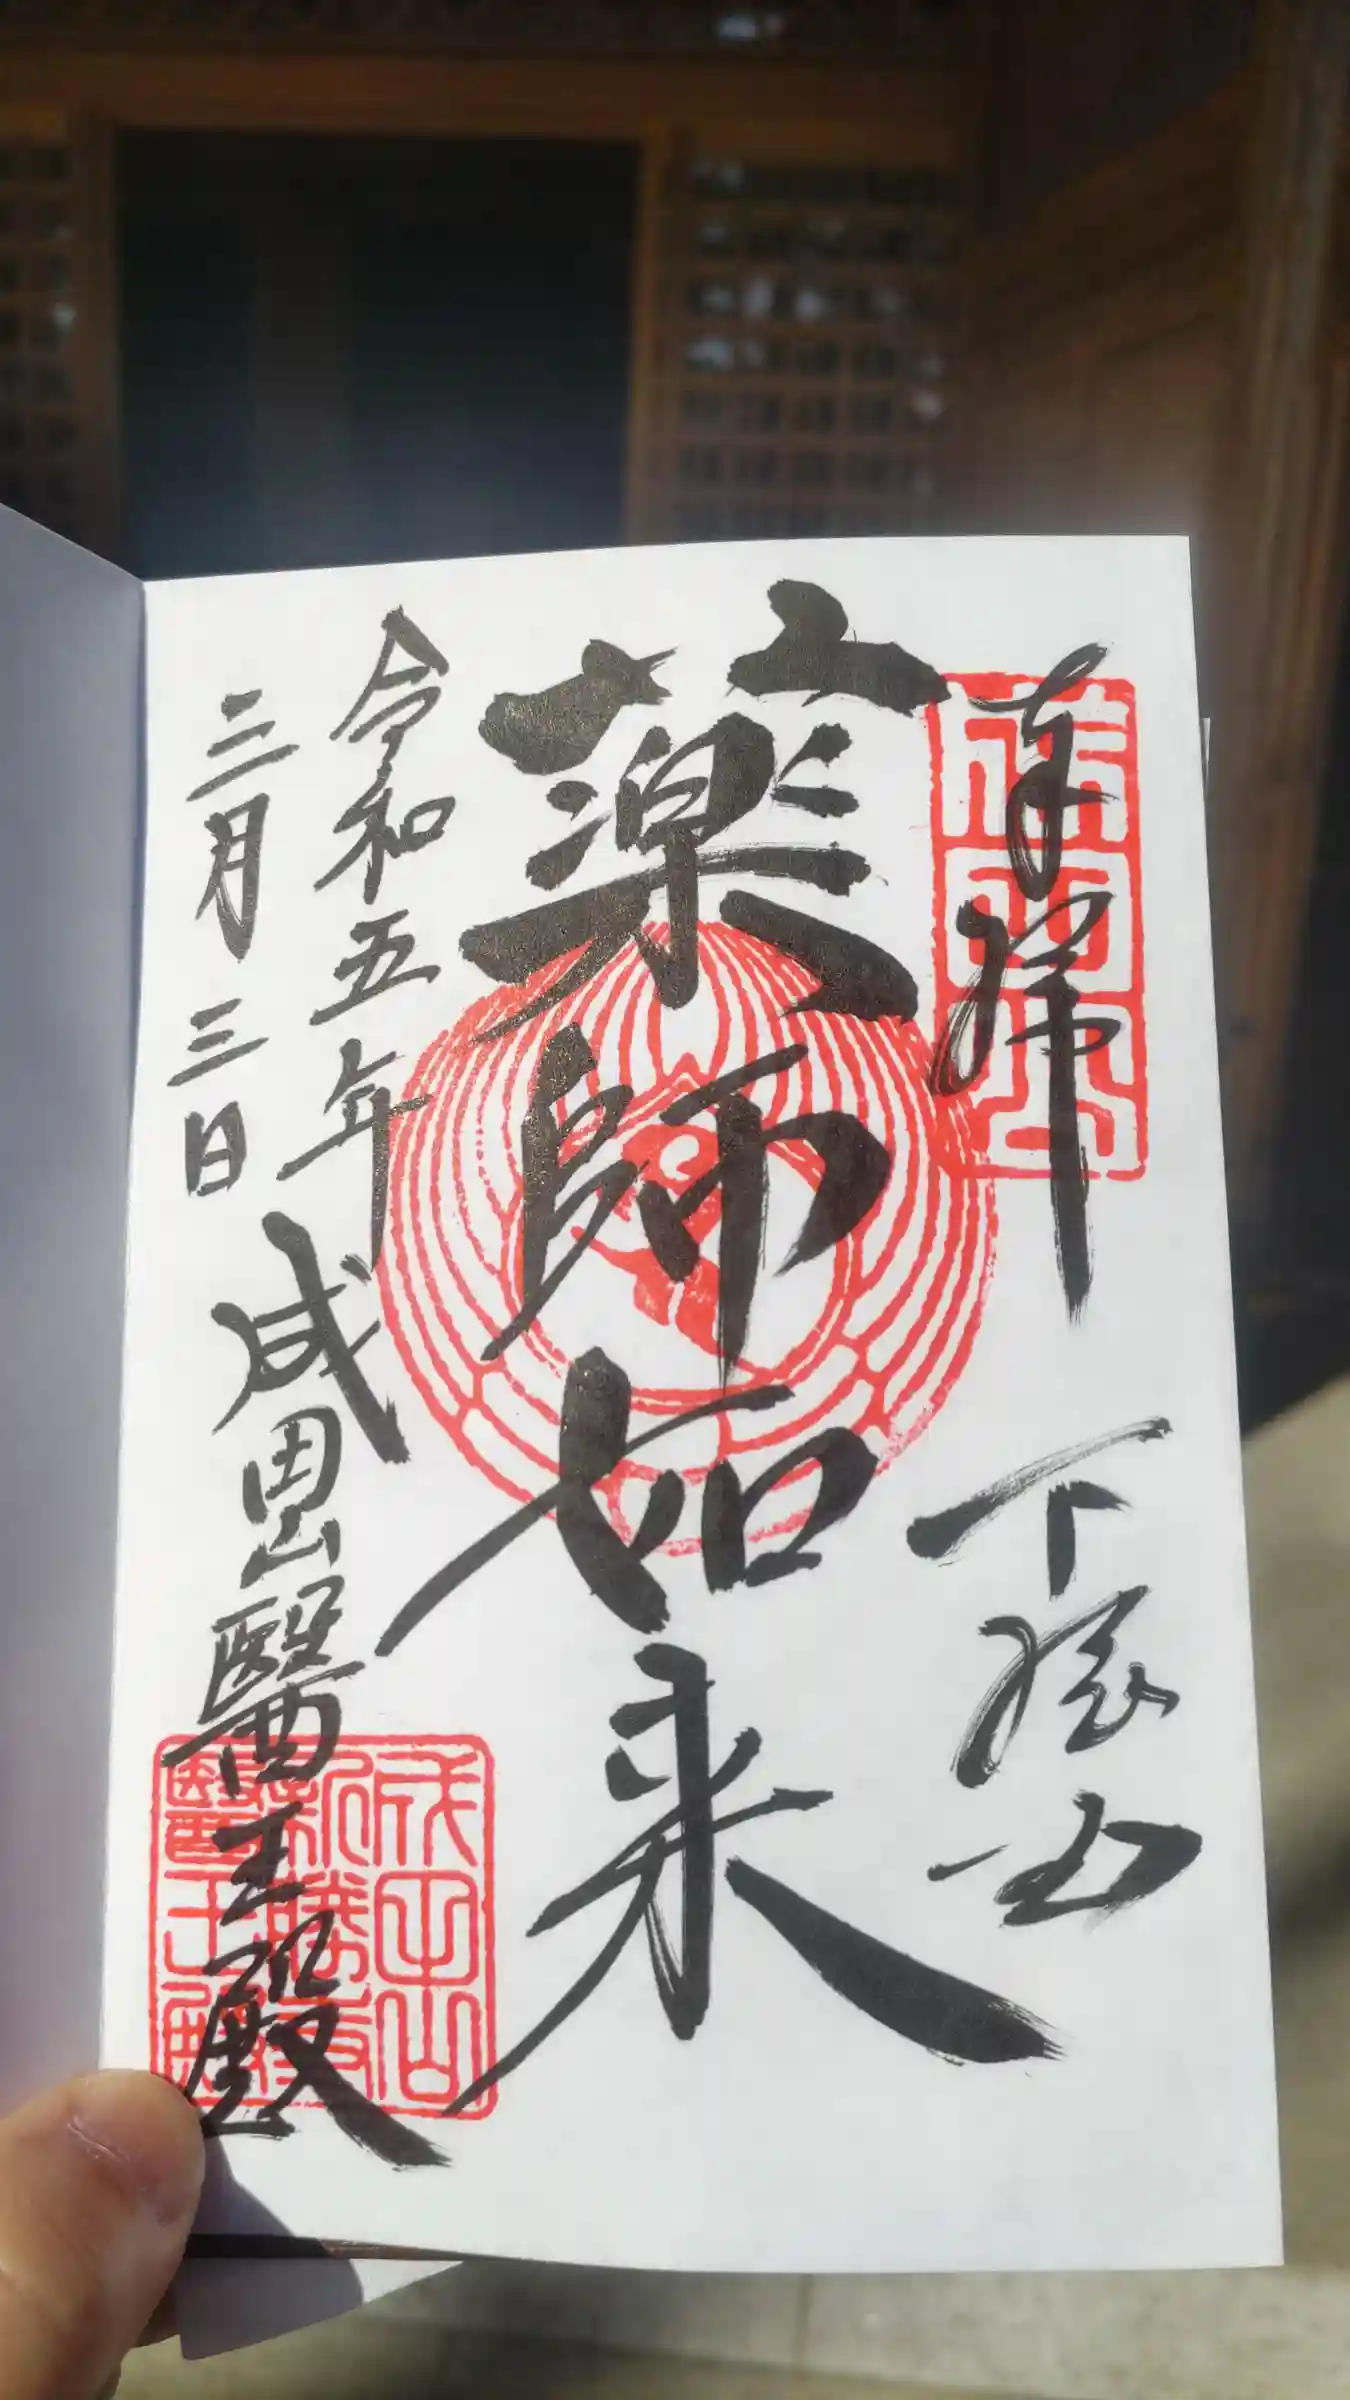 奉拝 下総
薬師如来
令和五年
三月三日
成田山醫王殿
成田山
新勝寺
醫王殿